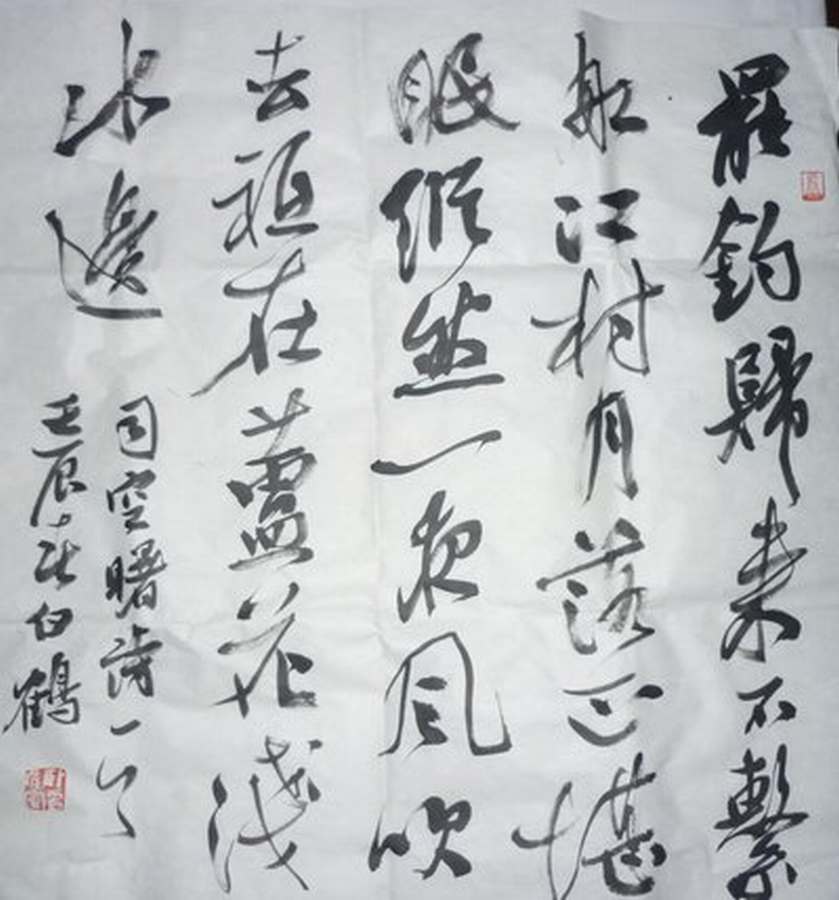 罷釣歸來不繫
船江村月落正堪
眠縱然一夜風吹
去祇在蘆花淺
水邊
司空曙詩一首
壬辰白鶴